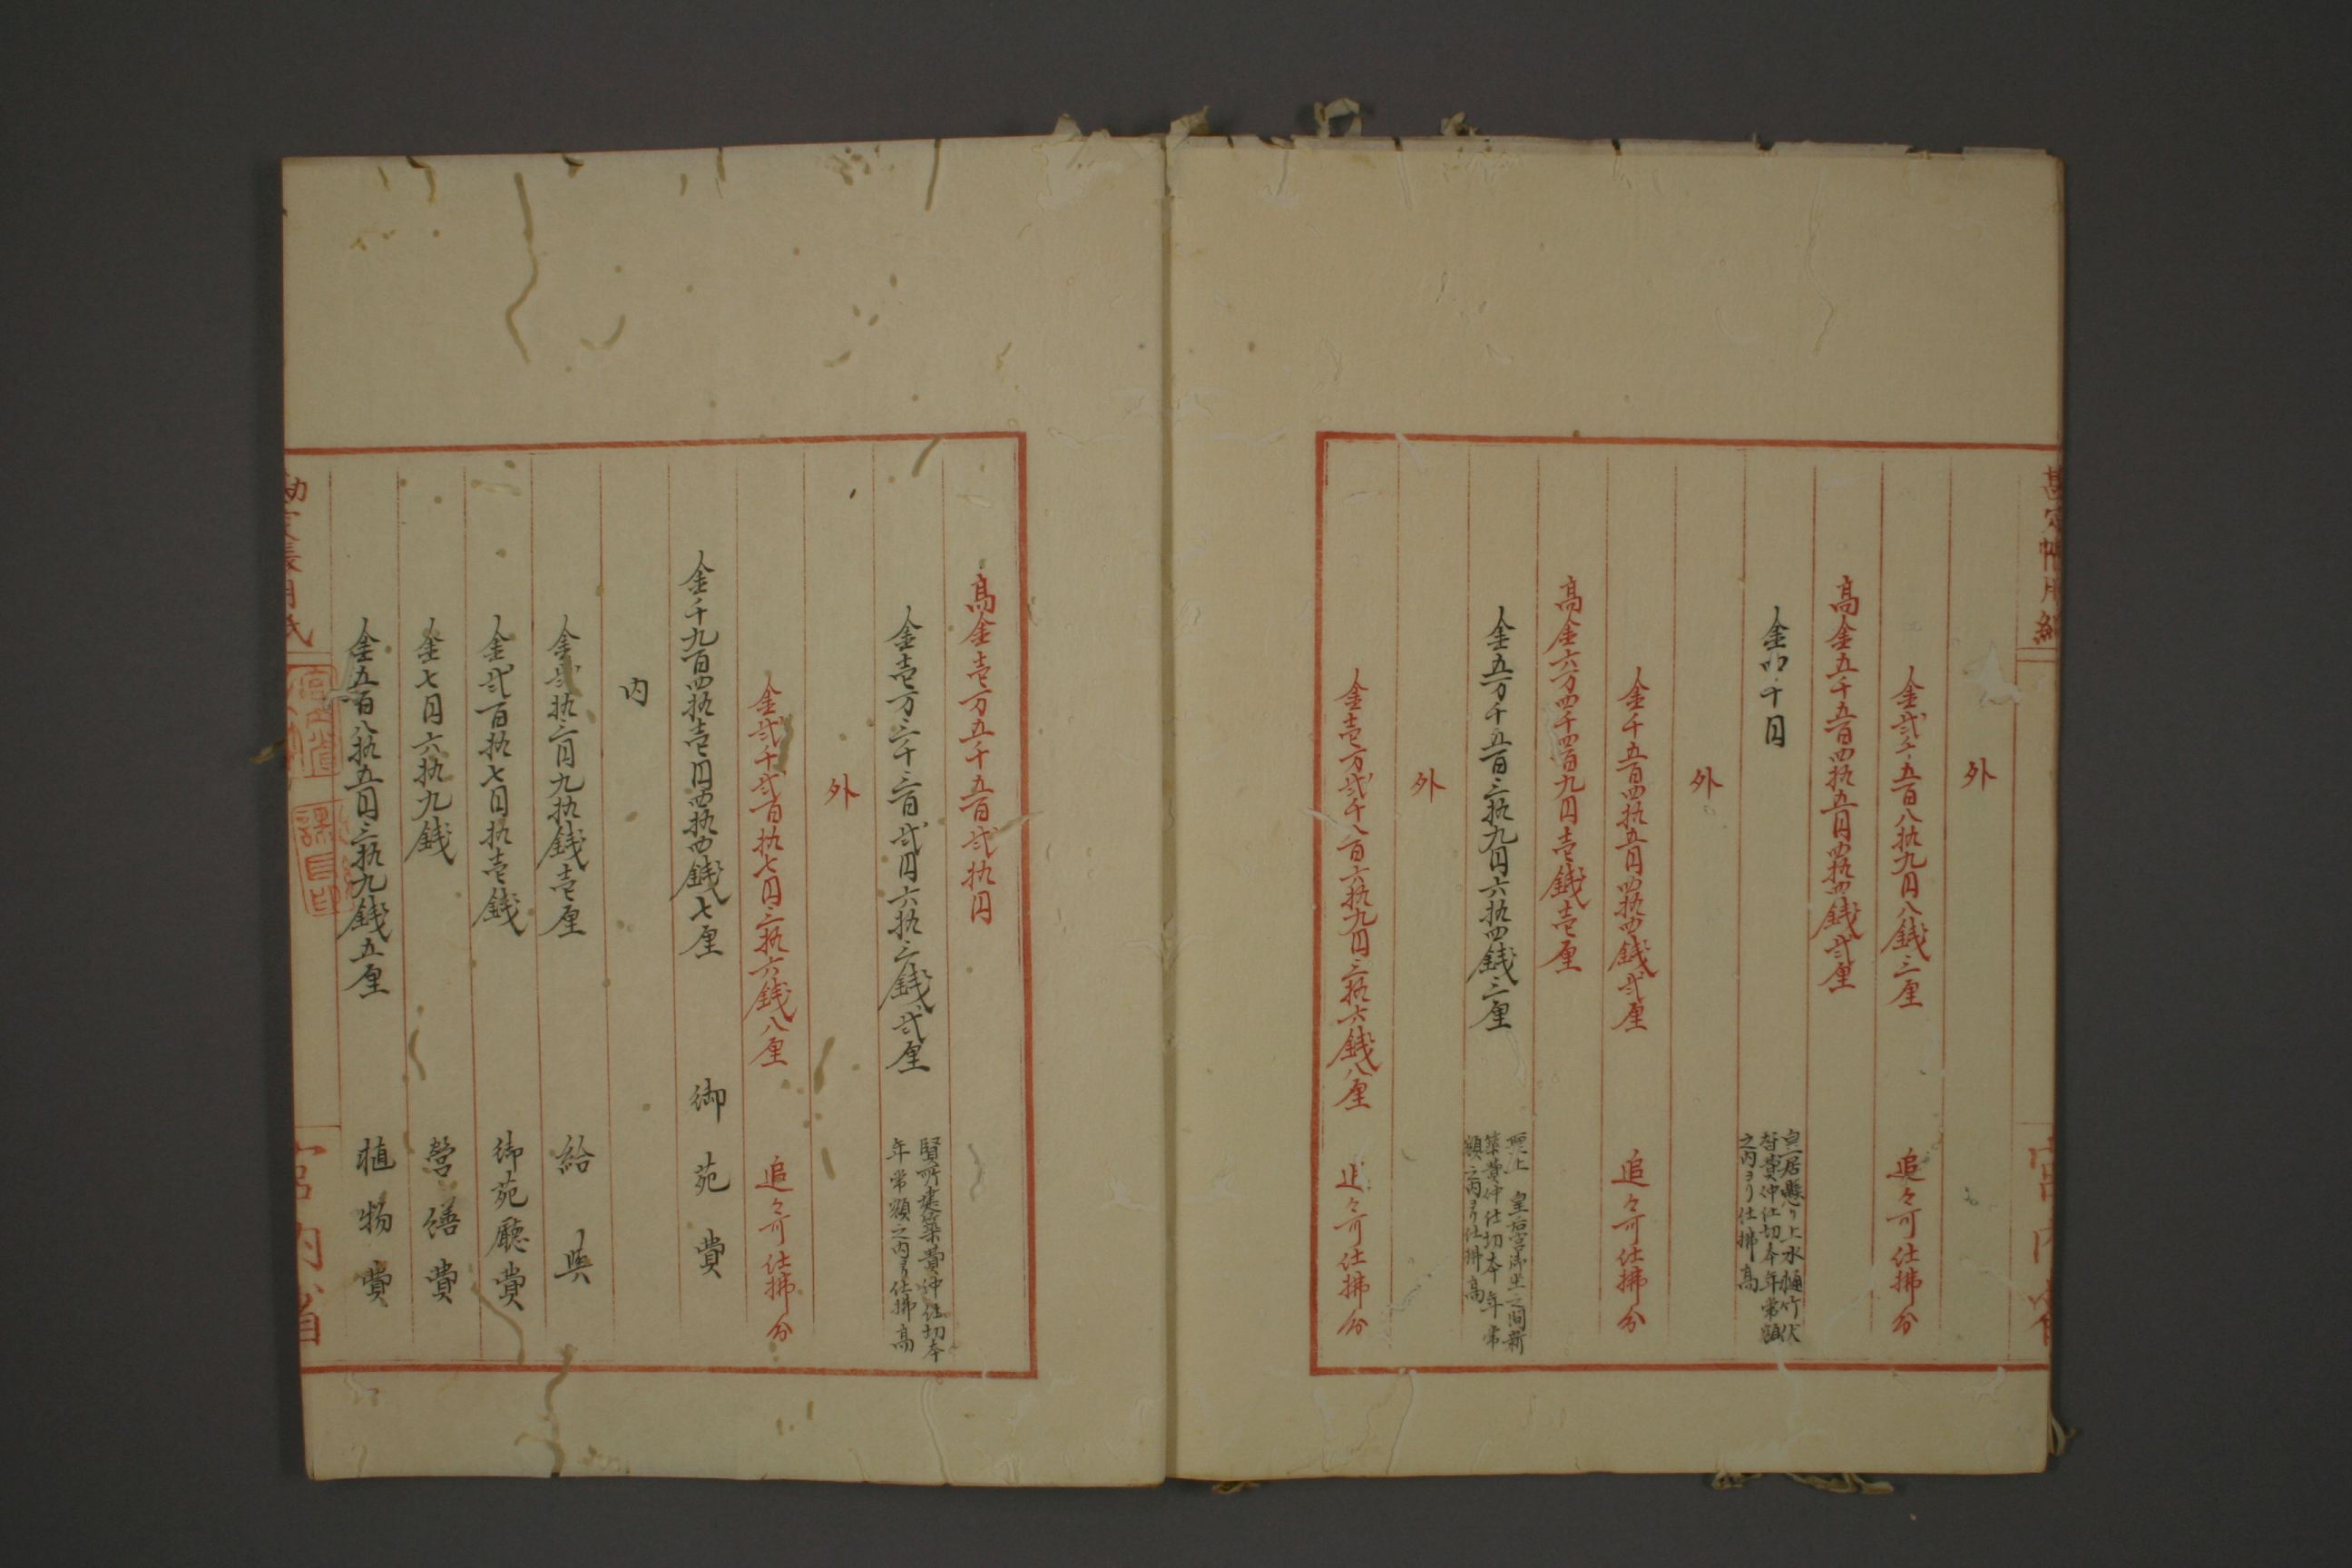 外
金弐千五百八拾九円八銭三厘 追々可仕拂分
高金五千五百四拾五円四拾四銭弐厘
金四千円
皇居懸り上水樋竹伏
替費仲仕切本年常額
之内ヨリ仕拂高
外
金千五百四拾五円四拾四銭弐厘 追々可仕拂分
高金六万四千四百九円壱銭壱厘
金五万千五百三拾九円六拾四銭三厘
聖上 皇后宮御坐之間新
築費仲仕切本年常
額之内ヨリ仕拂高
外
金壱万弐千八百六拾九円三拾六銭八厘 追々可仕拂分
高金壱万五千五百弐拾円
金壱万三千三百弐円六拾三銭弐厘
賢所建築費仲仕切本
年常額之内ヨリ仕拂高
外
金弐千弐百拾七円三拾六銭八厘 追々可仕拂分
金千九百四拾壱円四拾四銭七厘 御苑費
内
金弐拾三円九拾銭壱厘 給與
金弐百拾七円拾壱銭 御苑廳費
金七円六拾九銭 營繕費
金五百八拾五円三拾九銭五厘 植物費
宮内省